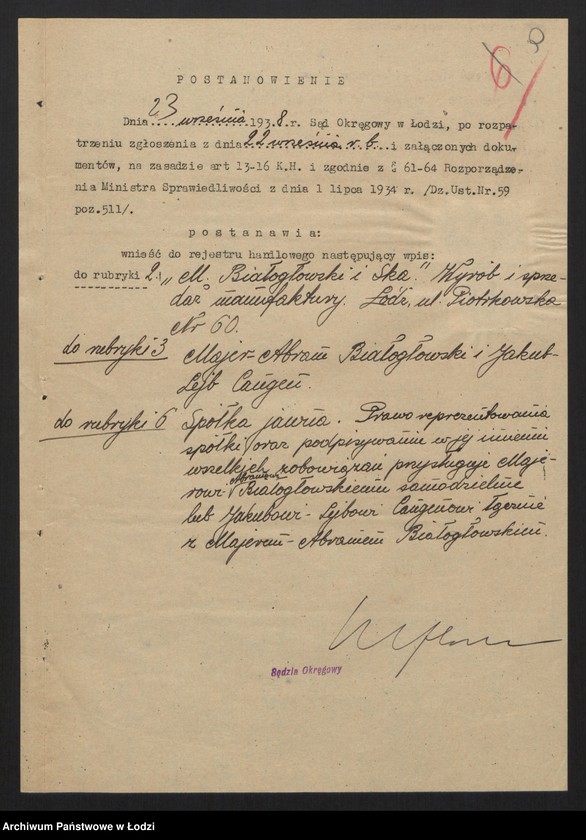 6
8
POSTANOWIENIE
Dnia 23 września 1938.r. Sąd Okręgowy w Łodzi, po rozpa-
trzeniu zgłoszenia z dnia 22 września r. b. i załączonych doku-
mentów, na zasadzie art 13-16 K.H. i zgodnie z § 61-64 Rozporządze-
nia Ministra Sprawiedliwości z dnia 1 lipca 1934 r. /Dz.Ust.Nr.59
poz.511/.
postanawia:
wnieść do rejestru handlowego następujący wpis:
do rubryki 2: „M. Białogłowski i Ska." Wyrób i sprze-
daż manufaktury. Łódź, ul. Piotrkowska
Nr 60.
do rubryki 3 Majer-Abram Białogłowski i Jakub-
Lejb Caugen.
do rubryki 6 Spółka jawna. Prawo reprezentowania
spółki oraz podpisywanie w jej imieniu
wszelkich zobowiązań przysługuje Maje-
rowi Abramowi Białogłowskiemu samodzielnie
lub Jakubowi-Lejbowi Caugenowi łącznie
z Majerem-Abramem Białogłowskim.
Sędzia Okręgowy
Archiwum Państwowe w Łodzi